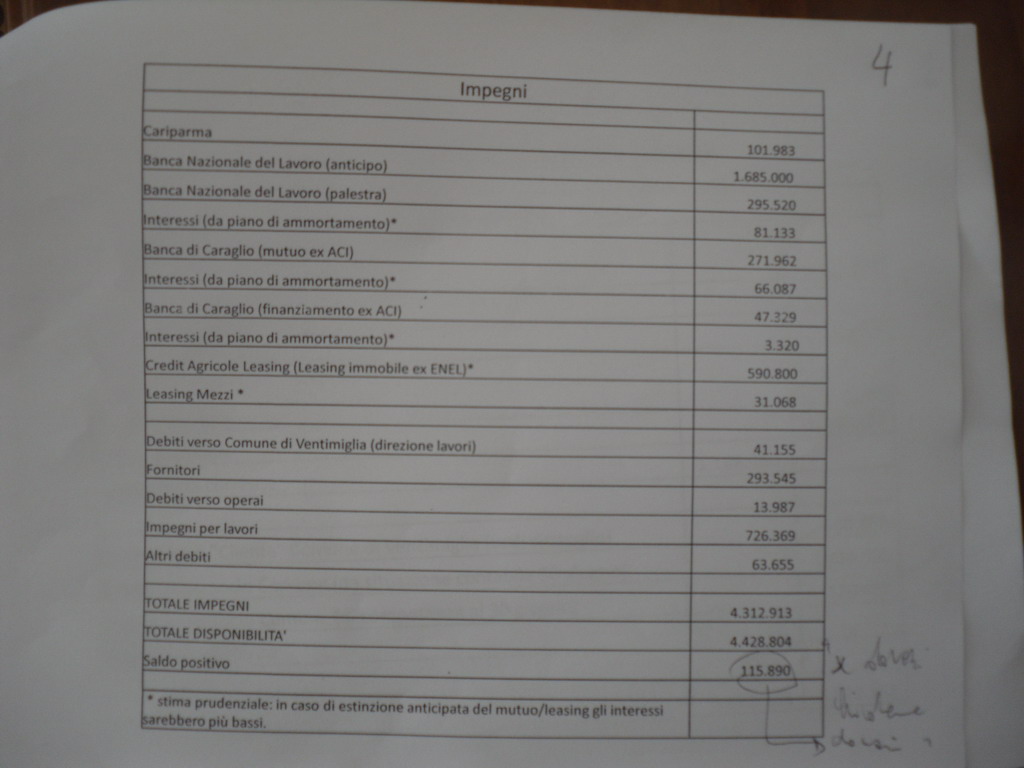 4
Impegni
Cariparma 101.983
Banca Nazionale del Lavoro (anticipo) 1.685.000
Banca Nazionale del Lavoro (palestra) 295.520
Interessi (da piano di ammortamento)* 81.133
Banca di Caraglio (mutuo ex ACI) 271.962
Interessi (da piano di ammortamento)* 66.087
Banca di Caraglio (finanziamento ex ACI) 47.329
Interessi (da piano di ammortamento)* 3.320
Credit Agricole Leasing (Leasing immobile ex ENEL)* 590.800
Leasing Mezzi * 31.068
Debiti verso Comune di Ventimiglia (direzione lavori) 41.155
Fornitori 293.545
Debiti verso operai 13.987
Impegni per lavori 726.369
Altri debiti 63.655
TOTALE IMPEGNI 4.312.913
TOTALE DISPONIBILITA' 4.428.804
Saldo positivo 115.890
* stima prudenziale: in caso di estinzione anticipata del mutuo/leasing gli interessi
sarebbero più bassi.